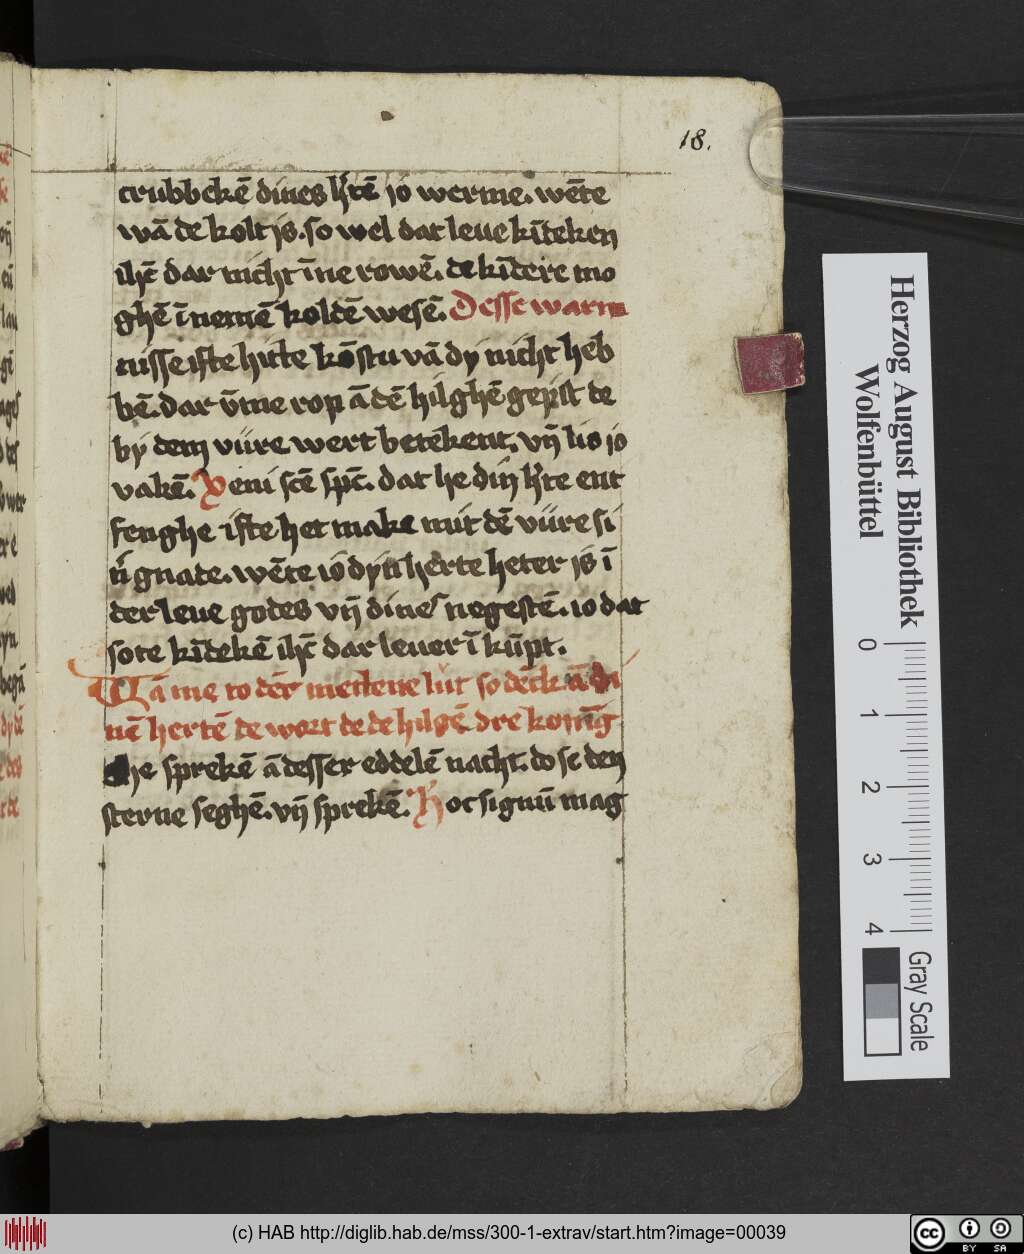 18.
crubbekē dines h'tē jo werme. wēte
wā de kolt is. so wel dat leue kīdeken
ihc̄ dar nicht īne rowē. de kīdere mo
ghē ī nemē koldē wesē. Desse warm
nisse ifte hitte kōstu vā dy nicht heb
bē. dar vm̄e rop ā dē hilghē geist de
by dem vüre wert betekent. vn̄ lis jo
vakē. Veni scē spc̄. dat he din h'te ent
fenghe ifte het make mit dē vüre si
n' gnade. wēte io dyn herte heter is ī
der leue godes vn̄ dines negestē. io dat
sote kīdekē ihc̄ dar leuer ī kūpt.
nē hertē de wort de de hilgē dre konīg
he sprekē ā desser eddelē nacht. do se den
sterne seghē. vn̄ sprekē. Hoc signū mag
Herzog August Bibliothek
Wolfenbüttel
0 1 2 3 4
Gray Scale
(c) HAB http://diglib.hab.de/mss/300-1-extrav/start.htm?image=00039
cc BY SA